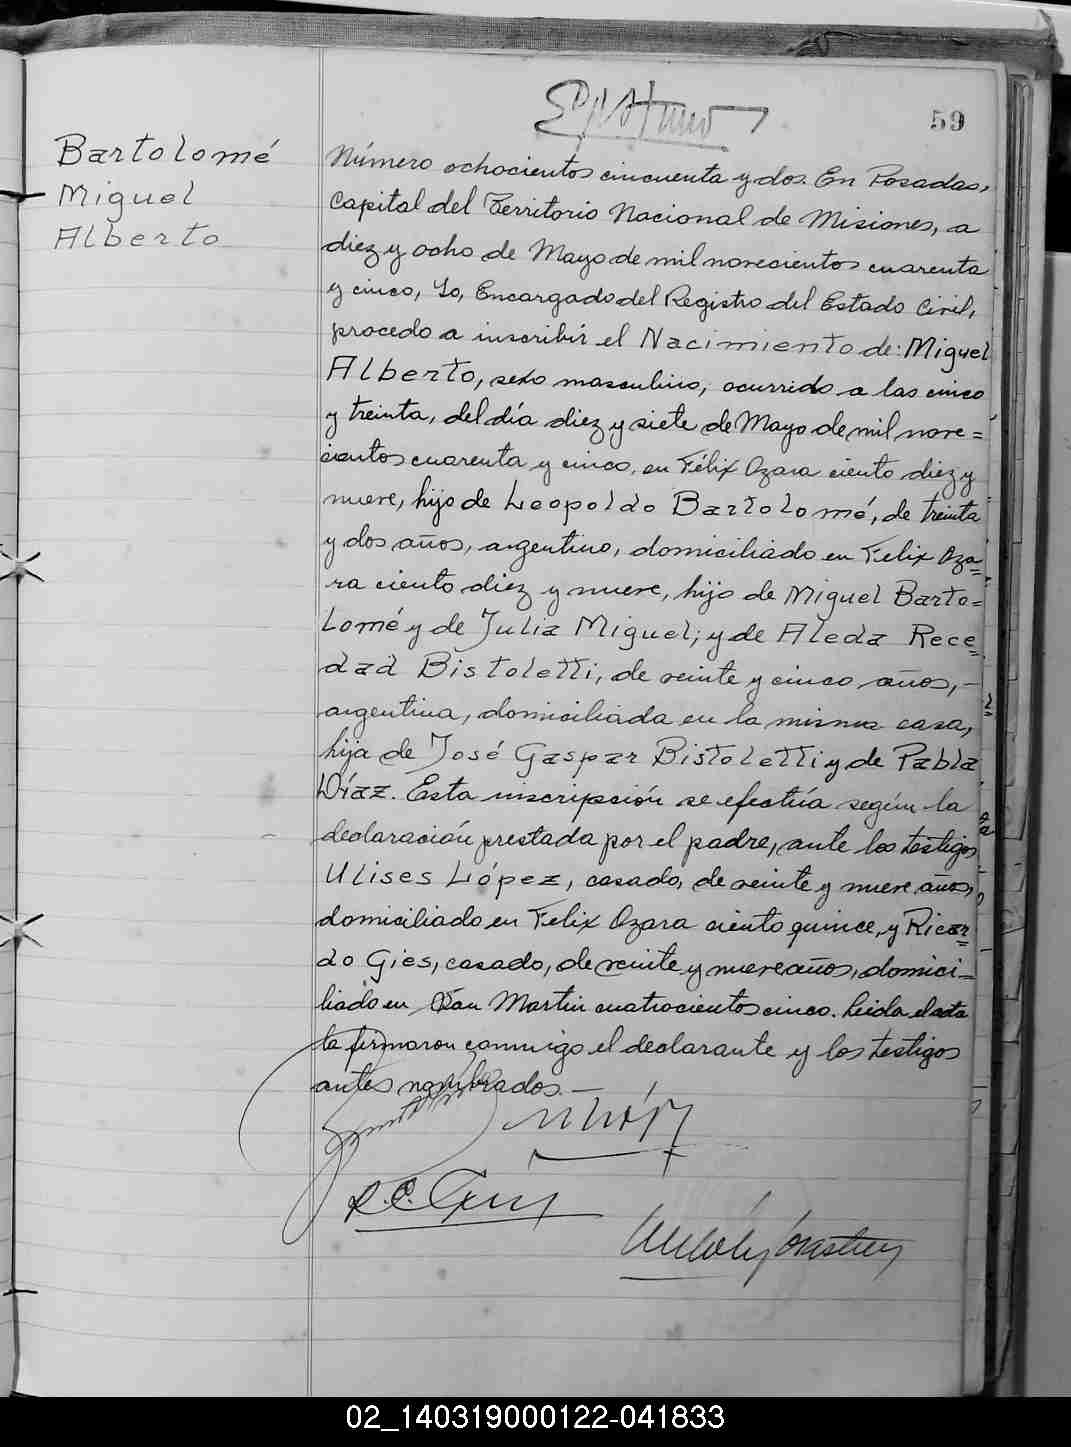 59
Bartolomé
Miguel
Alberto
Número ochocientos cincuenta y dos. En Posadas,
Capital del Territorio Nacional de Misiones, a
diez y ocho de Mayo de mil novecientos cuarenta
y cinco, Yo, Encargado del Registro del Estado Civil,
procedo a inscribir el Nacimiento de: Miguel
Alberto, sexo masculino, ocurrido a las cinco
y treinta, del día diez y siete de Mayo de mil nove=
cientos cuarenta y cinco, en Félix Azara ciento diez y
nueve, hijo de Leopoldo Bartolomé, de treinta
y dos años, argentino, domiciliado en Felix Aza=
ra ciento diez y nueve, hijo de Miguel Barto=
lomé y de Julia Miguel; y de Aleda Rece=
dad Bistoletti, de veinte y cinco años, -
argentina, domiciliada en la misma casa,
hija de José Gaspar Bistoletti y de Pabla
Díaz. Esta inscripción se efectúa según la
declaración prestada por el padre, ante los testigos
Ulises López, casado, de veinte y nueve años,
domiciliado en Felix Azara ciento quince, y Ricar=
do Gies, casado, de veinte y nueve años, domici=
liado en San Martin cuatrocientos cinco. Leida el acta
la firmaron conmigo el declarante y los testigos
antes nombrados.-
02_140319000122-041833